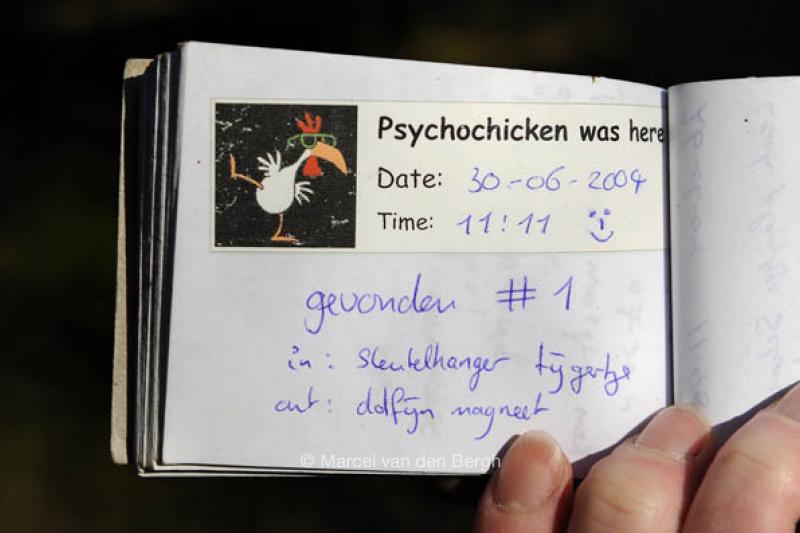 Psychochicken was here
Date: 30-06-2004
Time: 11:11
gevonden # 1
in: sleutelhanger tijgertje
out: dolfijn magneet
© Marcel van den Bergh